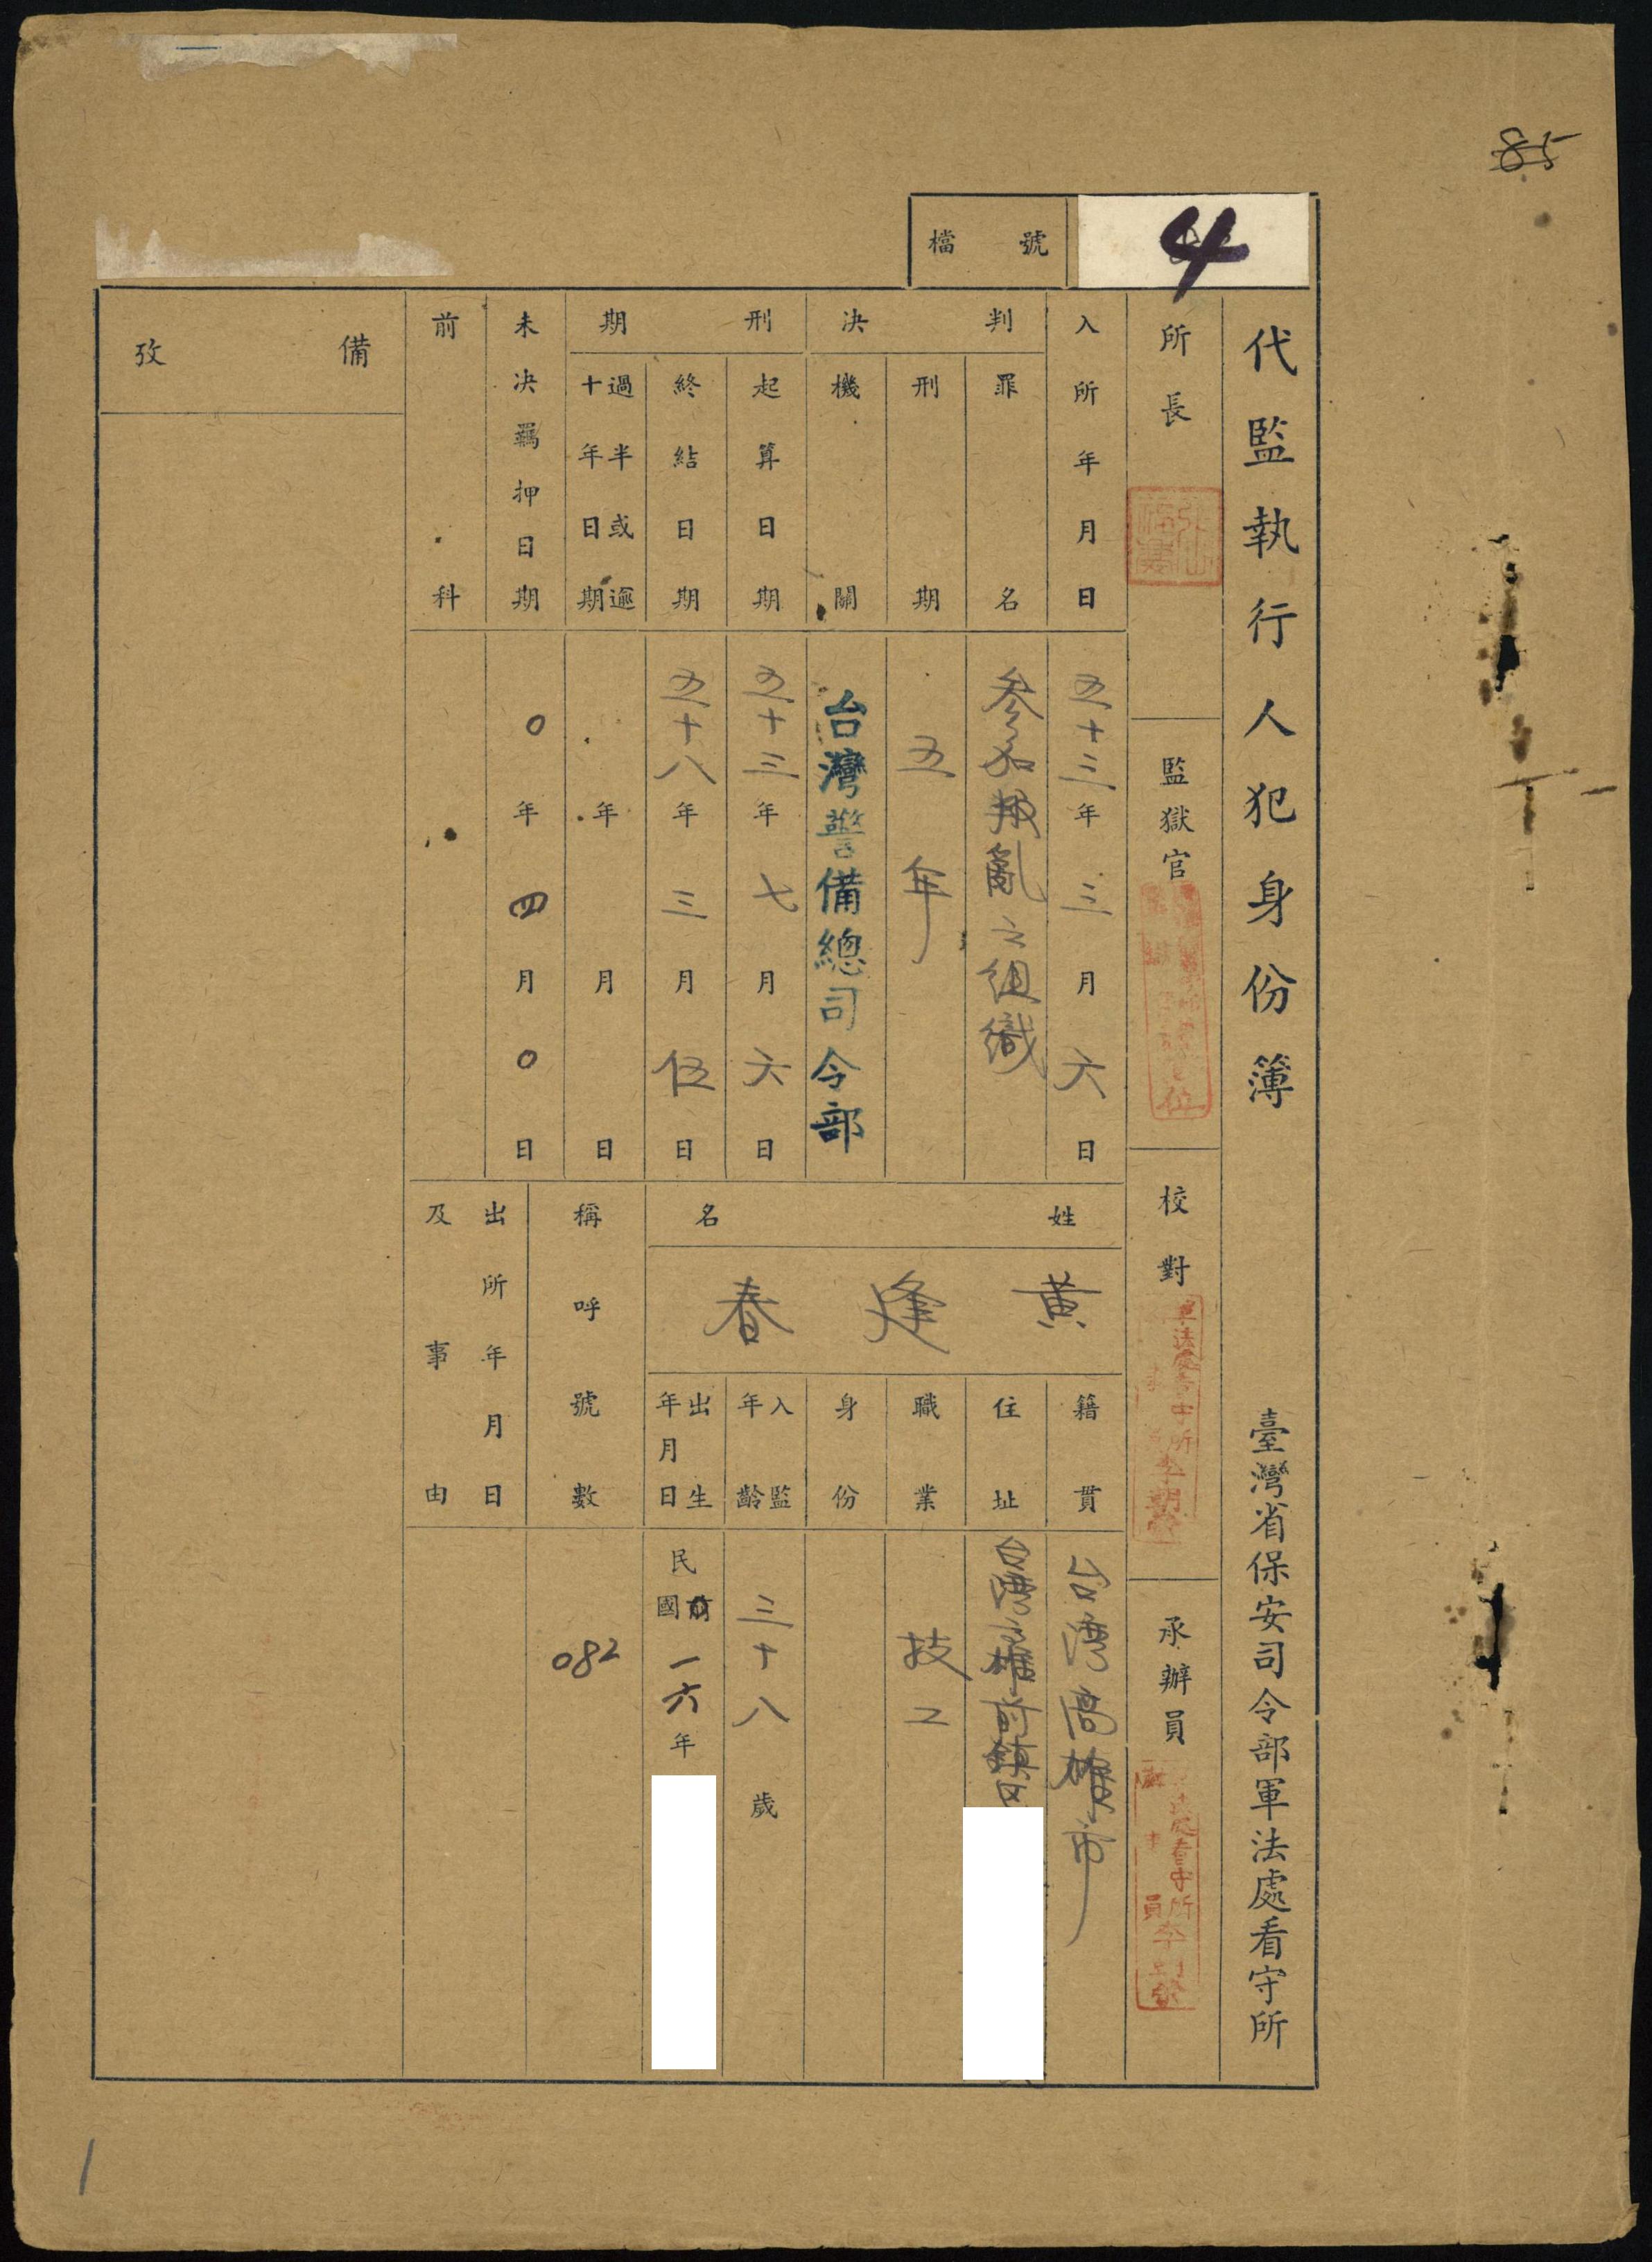 85
檔號
4
代監執行人犯身份簿
臺灣省保安司令部軍法處看守所
所長
監獄官
校對
承辦員
入所年月日
五十三年三月六日
判決
罪名
参加叛亂之組織
刑期
五年
機關
台灣警備總司令部
刑期
起算日期
五十三年七月六日
終結日期
五十八年三月伍日
過半或逾
十年日期
年月日
未決羈押日期
0年四月0日
前科
姓名
黃逢春
籍貫
台湾高雄市
住址
台湾高雄前鎮区
職業
技工
身份
入監
年齡
三十八歲
出生
年月日
民國前
一六年
稱呼號數
082
出所年月日
及事由
備攷
1